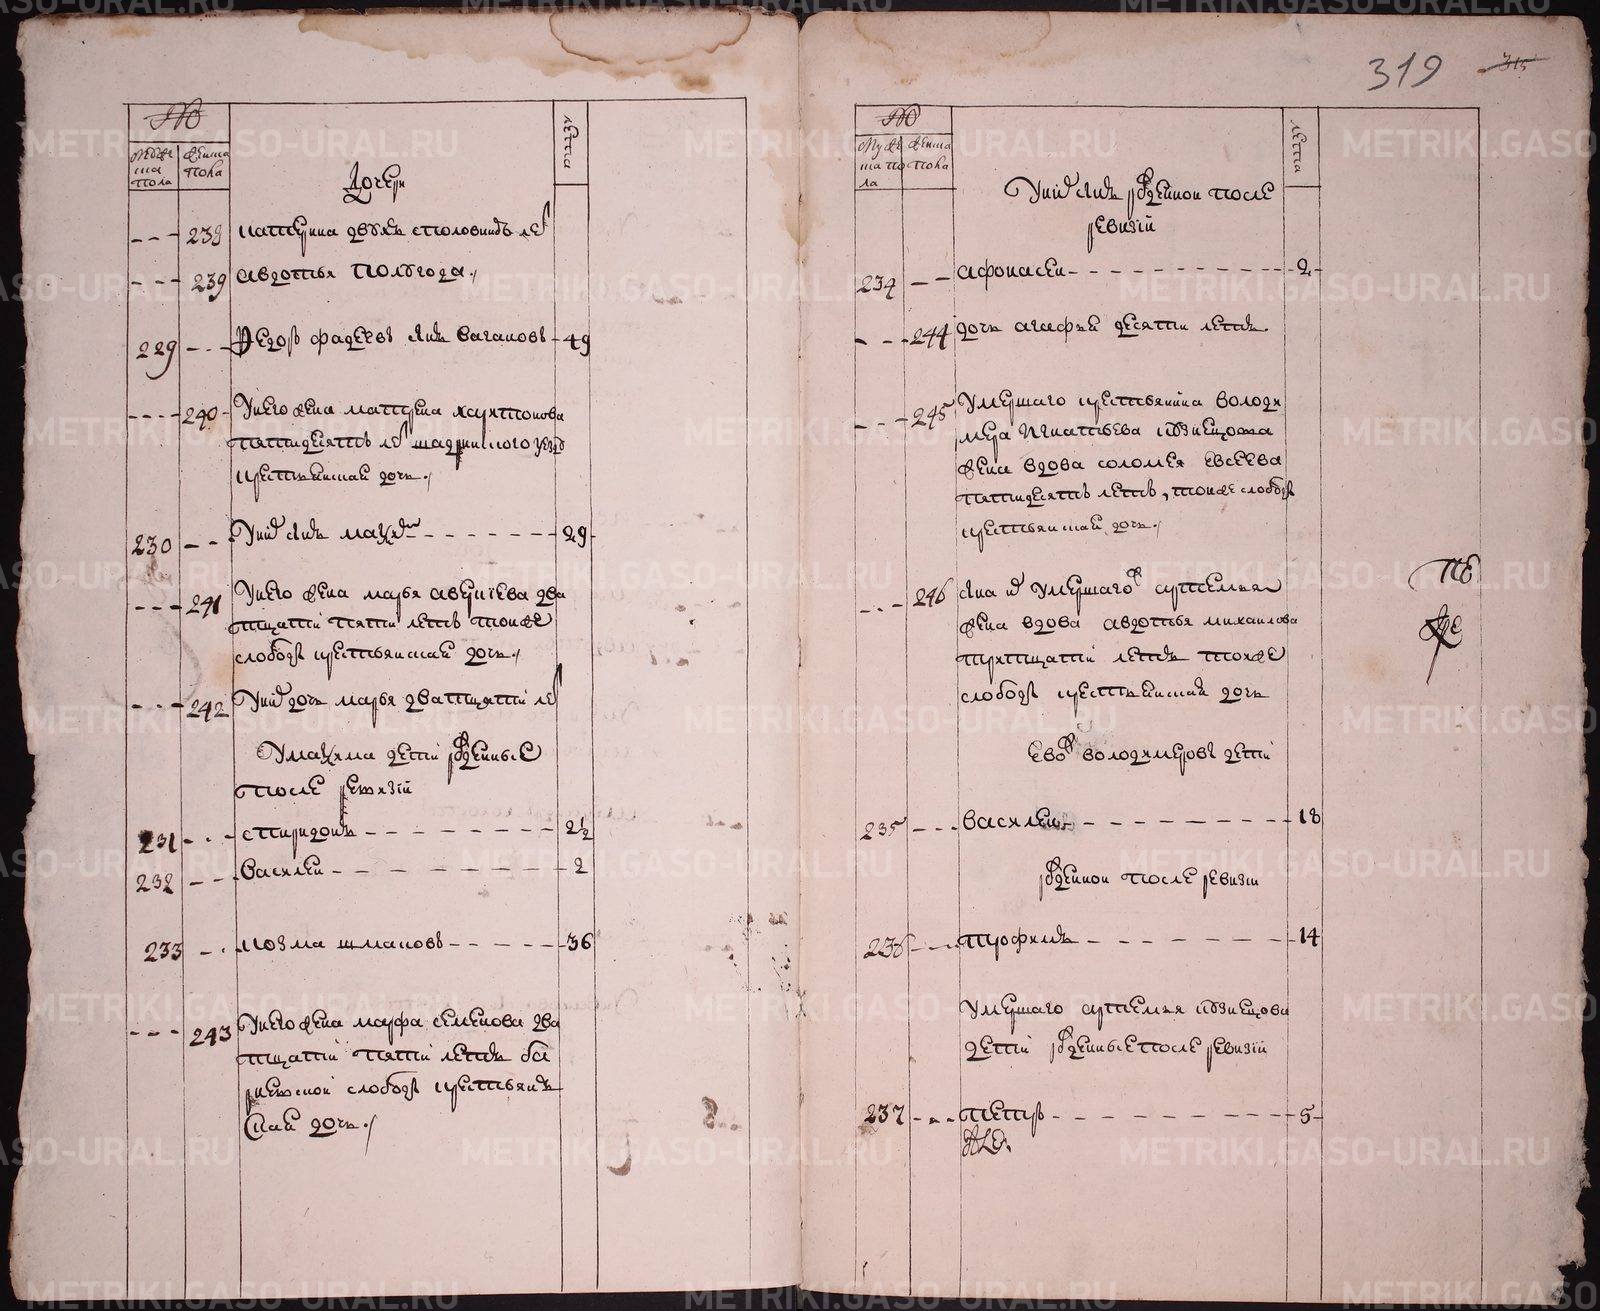 319
315
№
Мужеска пола
Женска пола
лета
Дочери
238 катерина двухъ споловиною летъ
239 авдотья полугода
229 Федоръ фадеевъ сынъ вагановъ 49
240 Унего жена матрена харитонова
пятидесятъ летъ шадринского уезду
крестьянская дочь
230 Унихъ сынъ максимъ 29
241 Унего жена марья аверкиева два
тцати пяти летъ тоиже
слободы крестьянская дочь
242 Унихъ дочь марья дватцати летъ
Умаксима дети рожденные
после ревизии
231 спиридонъ 2½
232 василеи 2
233 козма шмаковъ 36
243 Унего жена марфа семенова два
тцати пяти летъ
слободы крестьян
ская дочь
№
Мужеска пола
Женска пола
лета
Унихъ сынъ рожденнои после
ревизии
234 афонасеи 2
244 дочь агафия десяти летъ
245 Умершаго крестьянина володи
мера игнатьева кузнецова
жена вдова соломея евсеева
пятидесятъ летъ, тоиже слободы
крестьянская дочь
246 сына ихъ умершаго артемья
жена вдова авдотья михаилова
тритцати летъ тоиже
слободы крестьянская дочь
Ево володимеровъ дети
235 василеи 18
рожденнои после ревизии
236 трофимъ 14
Умершаго артемья кузнецова
дети рожденные после ревизии
237 петръ 5